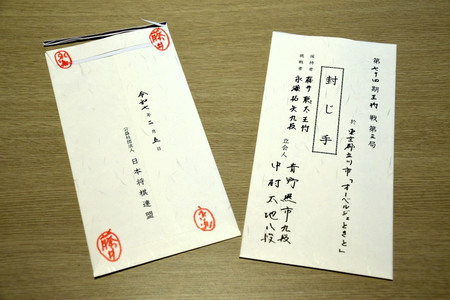 藤井
永瀬
令和七年二月五日
公益社団法人 日本将棋連盟
藤井
永瀬
第七十四期王将戦第三局
於 東京都立川市「オーベルジュときと」
封じ手
保持者 藤井聡太王将
挑戦者 永瀬拓矢九段
立会人 青野照市九段
中村太地八段